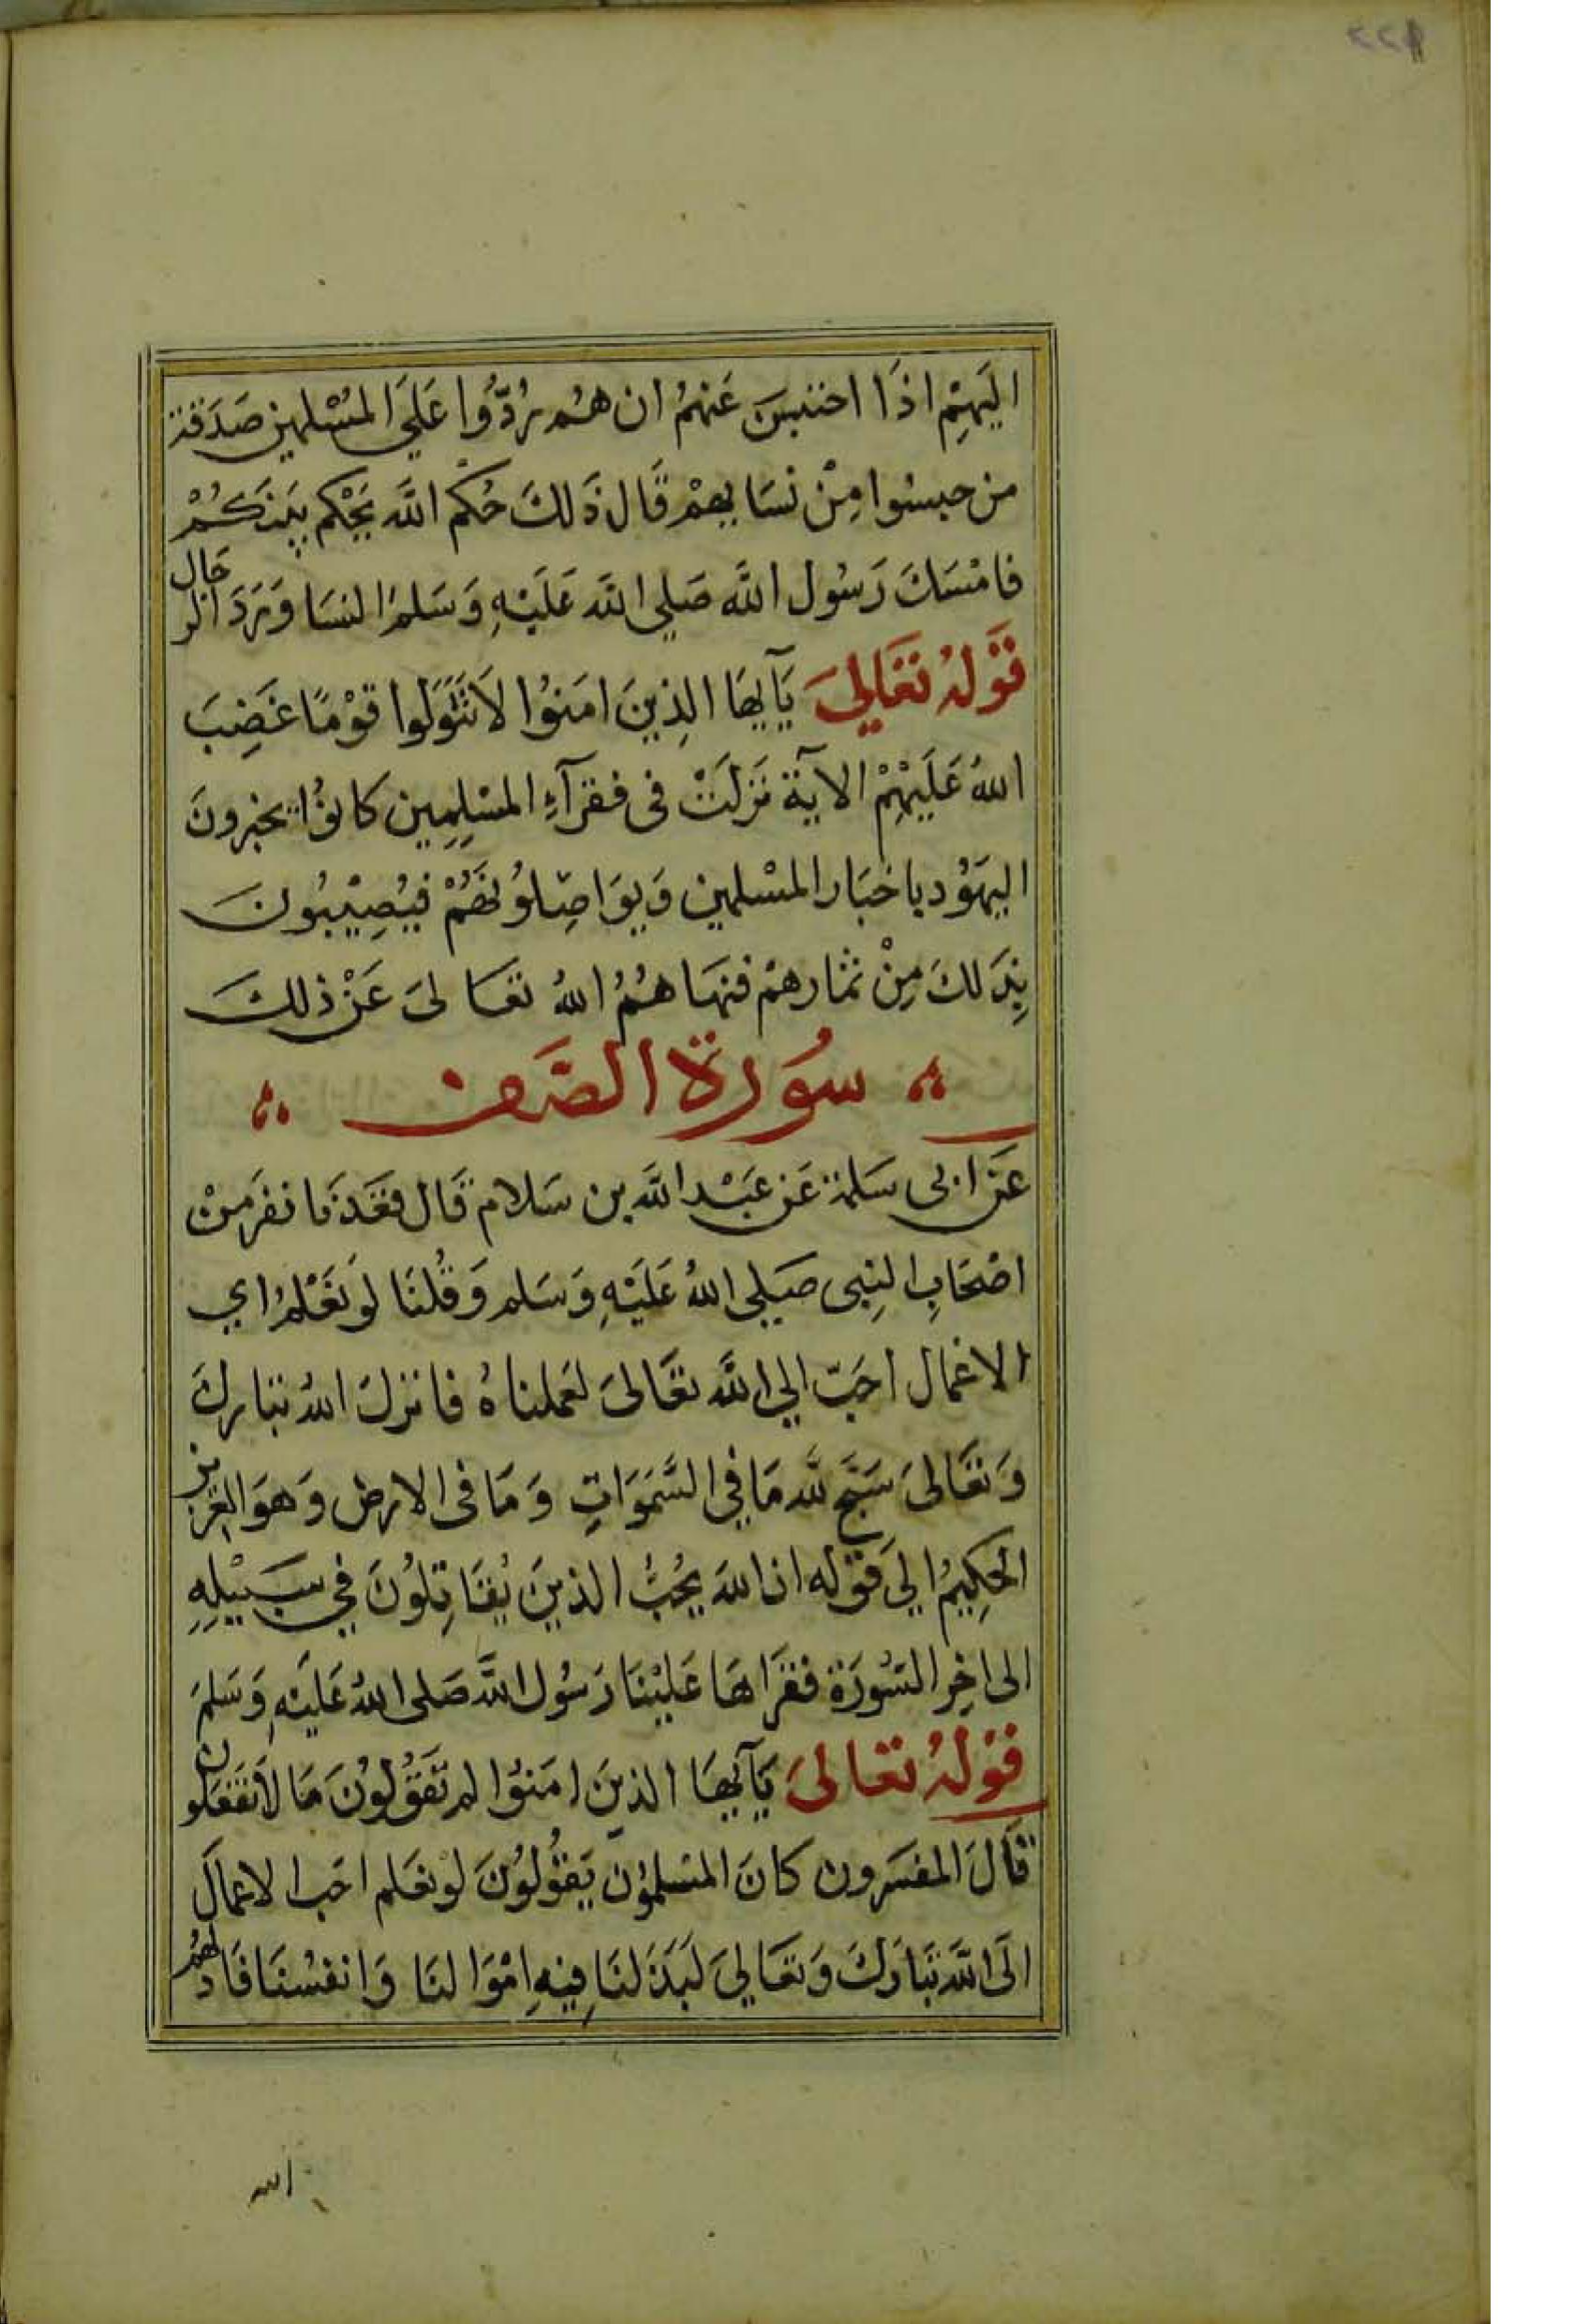 ٢٢١
اليَهِمْ اذَا احتبسَ عَنهمُ ان هُم رُدُّوا عَلَى المُسْلمين صَدَقة
من حبسوا مِنْ نسَايهمْ قَال ذَلك حُكم اللَّه يَحْكم بَينَكُمْ
فامْسَكَ رَسُول اللَّه صَلى اللَّه عَليْهِ وَسَلم النسَا وَرَد الرجَال
قوْلهُ تعَالىَ يَآيهَا الذِينَ امَنوُا لاَ تتَوَلوا قوْمًا غَضِبَ
اللهُ عَلَيْهِمْ الآيَة نَزلَتْ فى فقرآءِ المسْلِمِين كانوُا يخبرونَ
اليهَوُد باخبَار المسْلمين وَيوَاصِلوُنهَمُْ فيُصِيْبُونَ
بِذَلكَ مِنْ ثمَارهمْ فنهَاهُمُ اللهُ تعَالىَ عَنْ ذلكَ
سُورة الصَف
عَن ابى سَلمة عَن عَبْد اللَّه بن سَلام قَال قعَدنَا نفرَ مِنْ
اصْحَابِ النبِى صَلى اللهُ عَليْهِ وَسَلم وَقُلنَا لوَ نعْلمُ اي
الاعْمال احَبّ الى اللَّه تعَالىَ لعَملناهُ فانزلَ اللهُ تبارك
وَتعَالىَ سَبَّح للَّه مَا في السَّمَوَاتِ وَمَا فى الارض وَهوَ العزيز
الحَكِيمُ الىَ قوْله ان اللهَ يحُبُّ الذينَ يُقَاتِلوُنَ في سَبيْلِهِ
الى اخِر السُّورَة فقرَاهَا عَليْنَا رَسُول اللَّه صَلى اللهُ عَليْهِ وَسَلمَ
قوْلهُ تعَالىَ يَآيهَا الذينَ امَنوُا لم تَقَوُلوُنَ مَا لاَ تفعَلون
قَالَ المفسَرون كانَ المسْلموُن يَقوُلوُنَ لوْ نعَلم احَب الاعمالَ
الَى اللَّه تبَارَكَ وَتعَالىَ لَبَذَلنَا فِيْهِ امْوَالنَا وَانفسْنَا فَادلهُم
الله